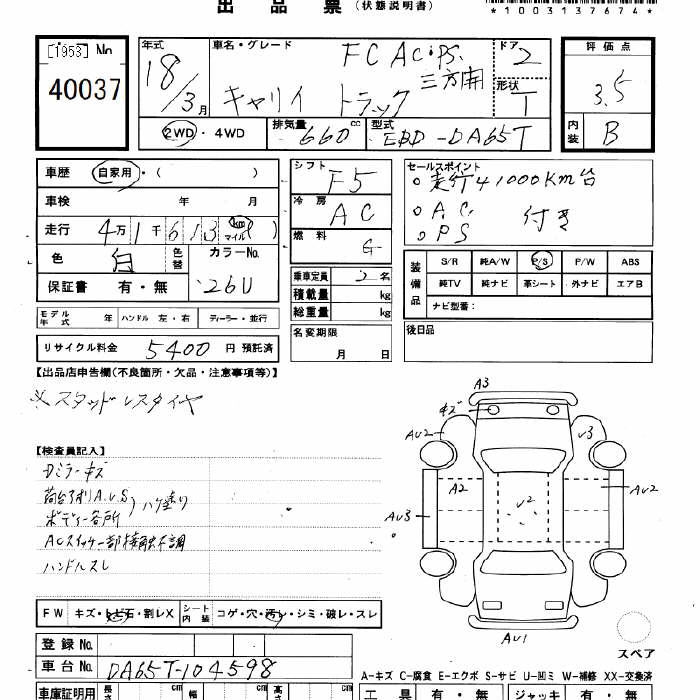 出品票 (状態説明書)
*1003137674*
[1953] No.
40037
年式 18/3月
車名・グレード FC AC・PS 三方開
キャリイ トラック
ドア 2
形状 T
評価点 3.5
内装 B
2WD・4WD
排気量 660 cc
型式 EBD-DA65T
車歴 自家用・( )
車検 年 月
走行 4万1千613 km マイル ( )
色 白 色替
カラーNo. 26U
保証書 有・無
シフト F5
冷房 AC
燃料 G
乗車定員 2名
積載量 kg
総重量 kg
名変期限 月 日
セールスポイント
○走行41000Km台
○A.C.
○PS 付き
装備品
S/R 純A/W P/S P/W ABS
純TV 純ナビ 革シート 外ナビ エアB
ナビ型番:
後日品
モデル年式 年 ハンドル 左・右 ディーラー・並行
リサイクル料金 5400 円 預託済
【出品店申告欄(不良箇所・欠品・注意事項等)】
※スタッドレスタイヤ
【検査員記入】
Dミラーキズ
荷台アオリA.U.S
ボディー各所 ハケ塗り
ACスイッチ一部接触不調
ハンドルスレ
A3
キズ
AU2
U3
A2
U2
AU2
AU3
AU1
スペア
FW キズ・トビ石・割レX シート内装 コゲ・穴・汚レ・シミ・破レ・スレ
登録No.
車台No. DA65T-104598
A-キズ C-腐食 E-エクボ S-サビ U-凹ミ W-補修 XX-交換済
車庫証明用 長さ cm 幅 cm 高さ cm
工具 有・無 ジャッキ 有・無